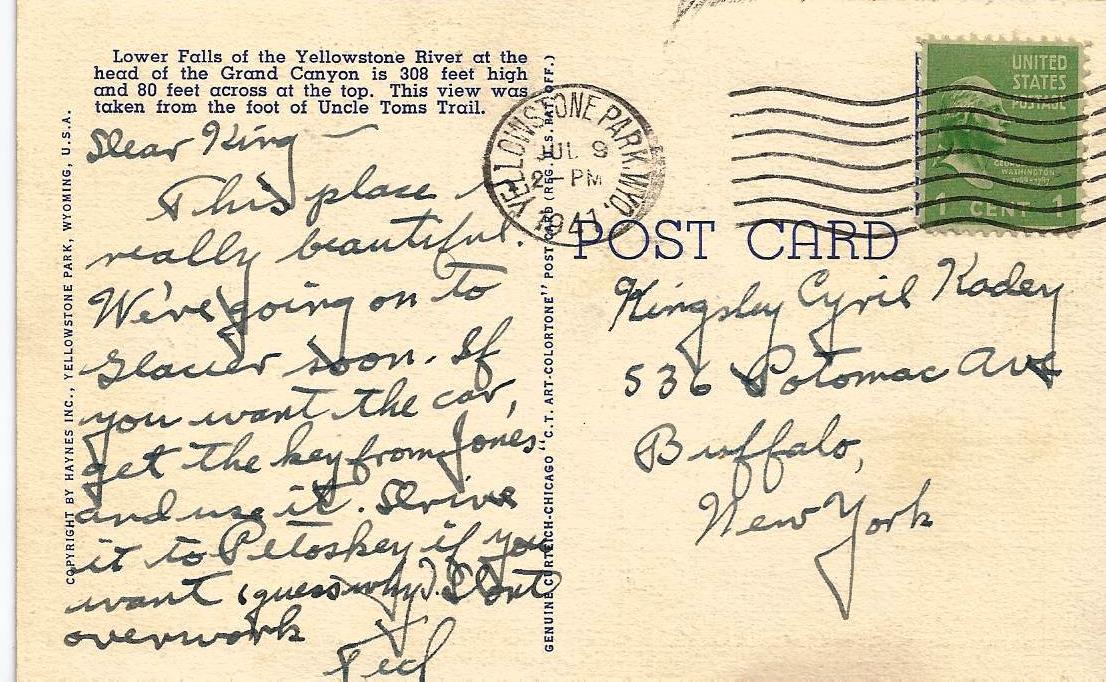 Lower Falls of the Yellowstone River at the
head of the Grand Canyon is 308 feet high
and 80 feet across at the top. This view was
taken from the foot of Uncle Toms Trail.
Dear King —
This place is
really beautiful.
We're going on to
Glacier soon. If
you want the car,
get the key from Jones
and use it. Drive
it to Petoskey if you
want (guess why). Don't
overwork
Ted
COPYRIGHT BY HAYNES INC., YELLOWSTONE PARK, WYOMING, U.S.A.
GENUINE CURTEICH-CHICAGO "C.T. ART-COLORTONE" POST CARD (REG. U.S. PAT. OFF.)
YELLOWSTONE PARK WYO.
JUL 9
2 - PM
1941
POST CARD
UNITED
STATES
POSTAGE
GEORGE
WASHINGTON
1789-1797
1 CENT 1
Kingsley Cyril Kadey
536 Potomac Ave
Buffalo,
New York